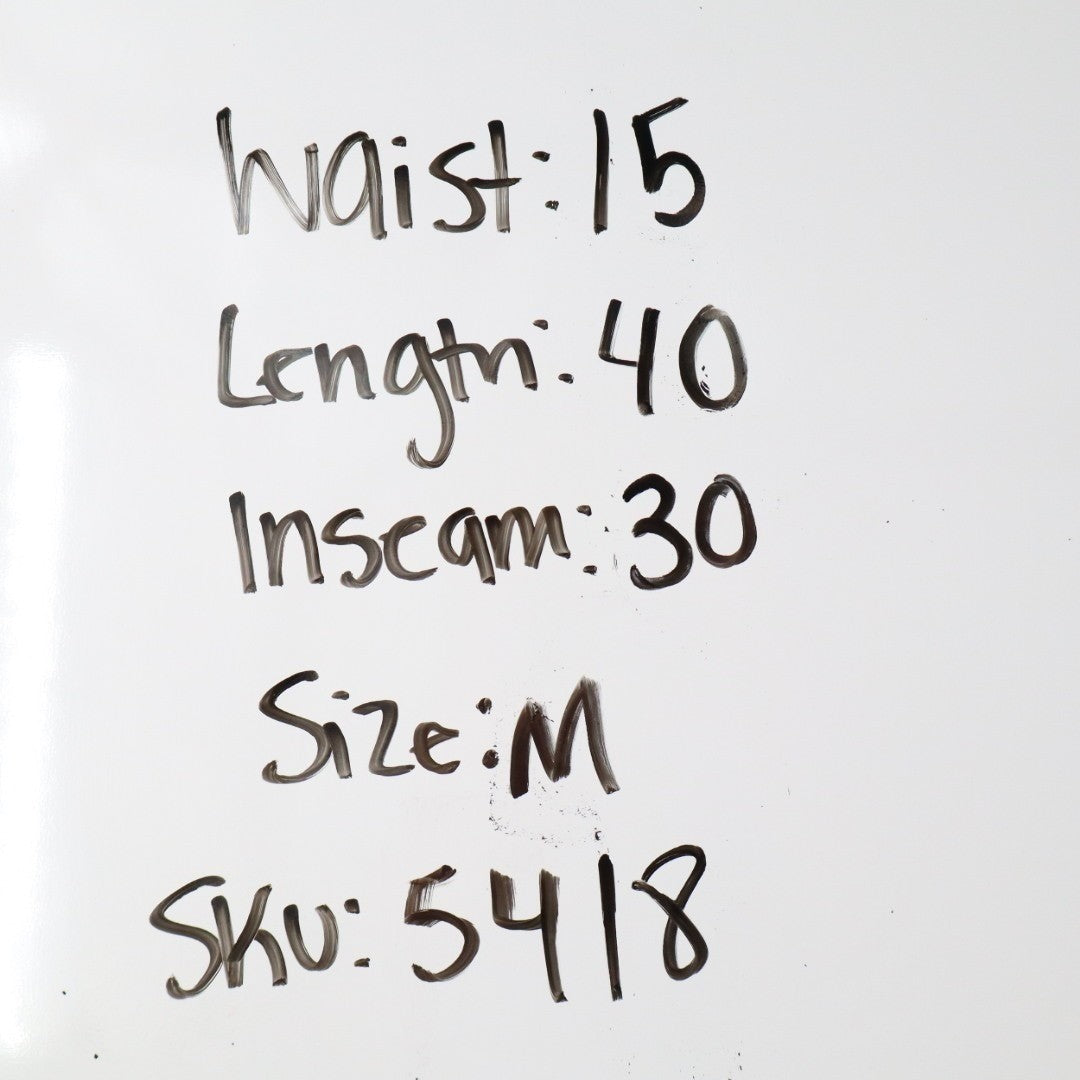 Waist: 15
Length: 40
Inseam: 30
Size: M
SKU: 5418